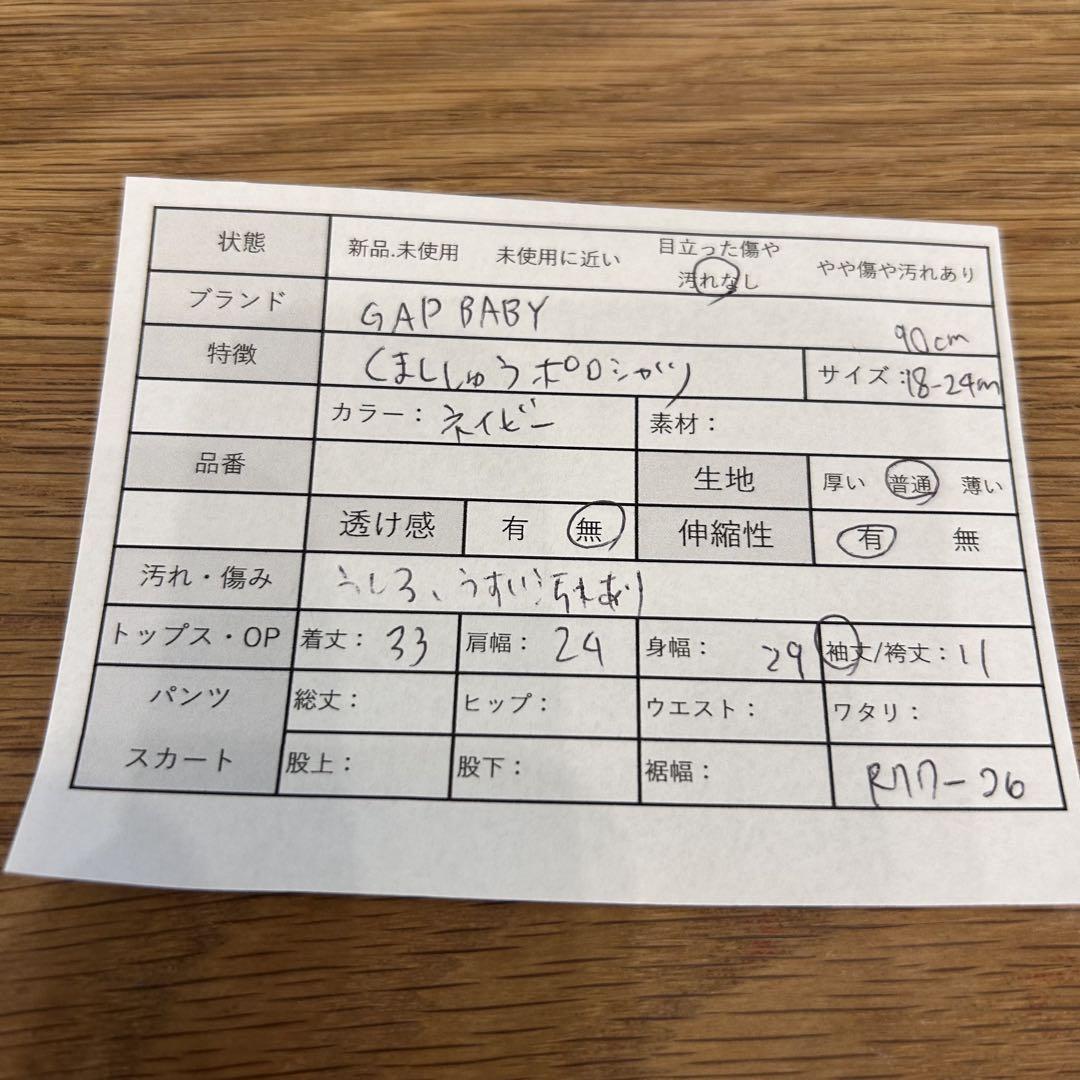 状態 新品.未使用 未使用に近い 目立った傷や汚れなし やや傷や汚れあり
ブランド GAP BABY 90cm
特徴 くまししゅうポロシャツ サイズ:18-24m
カラー: ネイビー 素材:
品番 生地 厚い 普通 薄い
透け感 有 無 伸縮性 有 無
汚れ・傷み うしろ、うすい汚れあり
トップス・OP 着丈: 33 肩幅: 24 身幅: 29 袖丈/袴丈: 11
パンツ 総丈: ヒップ: ウエスト: ワタリ:
スカート 股上: 股下: 裾幅: R77-26